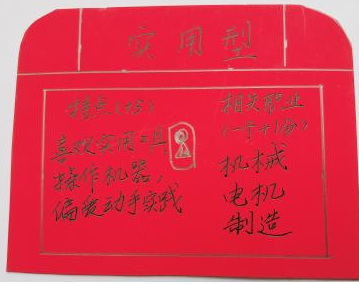 实用型
特点(大5):
喜欢实用工具
操作机器,
偏爱动手实践
相关职业
(一个+1份)
机械
电机
制造